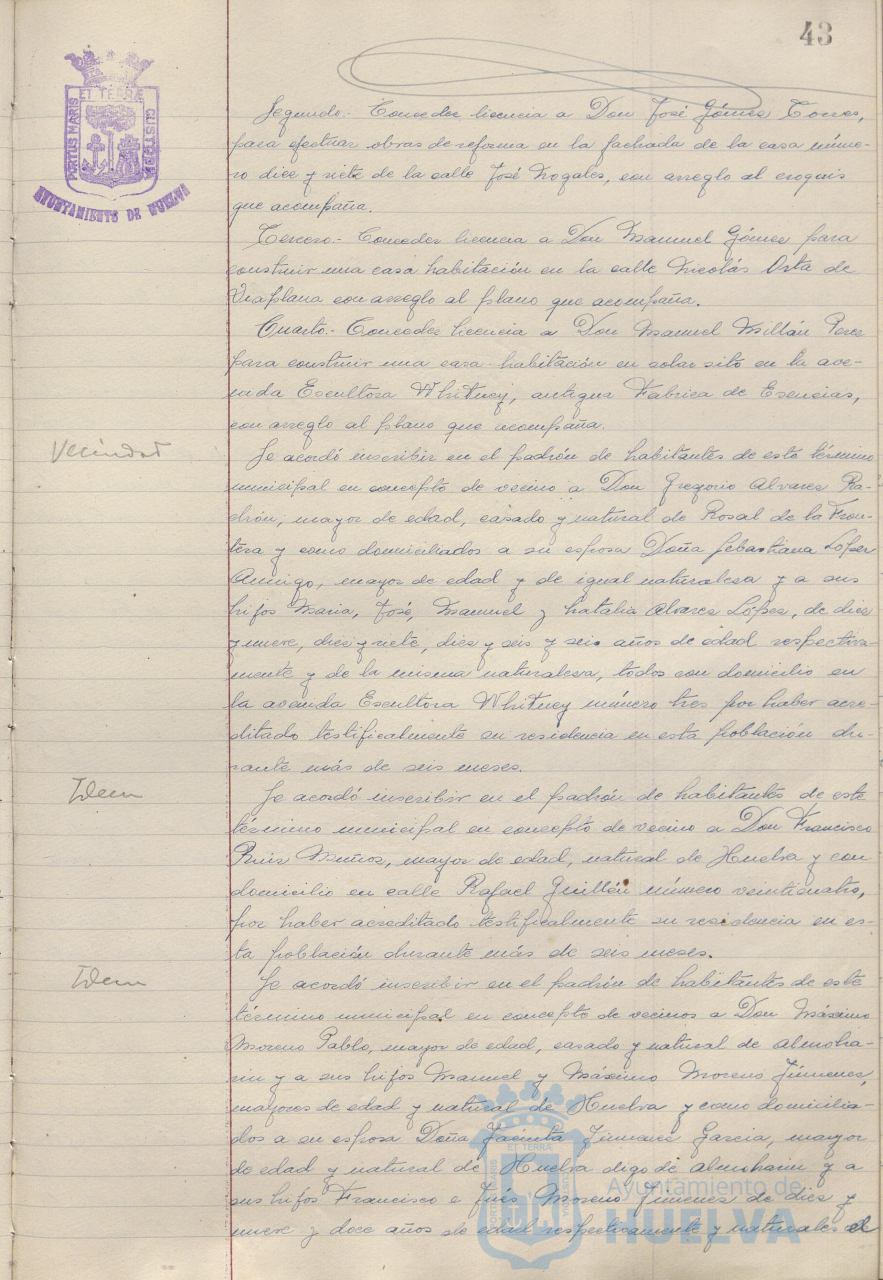 43
PORTUS MARIS ET TERRÆ CUSTODIA
AYUNTAMIENTO DE HUELVA
Segundo.- Conceder licencia a Don José Gómez Torres,
para efectuar obras de reforma en la fachada de la casa núme-
ro diez y siete de la calle José Nogales, con arreglo al croquis
que acompaña.
Tercero.- Conceder licencia a Don Manuel Gómez para
construir una casa habitación en la calle Nicolás Orta de
Viaplana con arreglo al plano que acompaña.
Cuarto.- Conceder licencia a Don Manuel Millán Perez
para construir una casa-habitación en solar sito en la ave-
nida Escultora Whitney, antigua Fabrica de Esencias,
con arreglo al plano que acompaña.
Vecindad
Se acordó inscribir en el padrón de habitantes de este término
municipal en concepto de vecino a Don Gregorio Alvarez Pa-
drón, mayor de edad, casado y natural de Rosal de la Fron-
tera y como domiciliados a su esposa Doña Sebastiana López
Amigo, mayor de edad y de igual naturaleza y a sus
hijos Maria, José, Manuel y Natalia Alvarez López, de diez
y nueve, diez y siete, diez y seis y seis años de edad respectiva-
mente y de la misma naturaleza, todos con domicilio en
la avenida Escultora Whitney número tres por haber acre-
ditado testificalmente su residencia en esta población du-
rante más de seis meses.
Idem
Se acordó inscribir en el padrón de habitantes de este
término municipal en concepto de vecino a Don Francisco
Ruiz Muñoz, mayor de edad, natural de Huelva y con
domicilio en calle Rafael Guillén número veinticuatro,
por haber acreditado testificalmente su residencia en es-
ta población durante más de seis meses.
Idem
Se acordó inscribir en el padrón de habitantes de este
término municipal en concepto de vecinos a Don Máximo
Moreno Pablo, mayor de edad, casado y natural de Almoha-
rin y a sus hijos Manuel y Máximo Moreno Jimenez,
mayores de edad y natural de Huelva y como domicilia-
dos a su esposa Doña Jacinta Jimenez Garcia, mayor
de edad y natural de Huelva digo de Almoharin y a
sus hijos Francisco e Inés Moreno Jimenez de diez y
nueve y doce años de edad respectivamente y naturales d
Ayuntamiento de
HUELVA